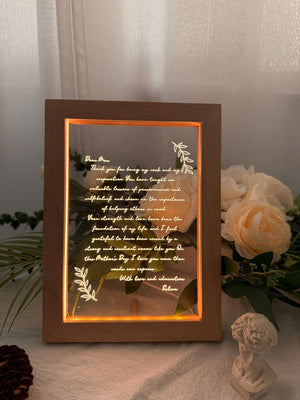 Dear Mom,
Thank you for being my rock and my
inspiration. You have taught me
valuable lessons of perseverance and
self-belief and shown me the importance
of helping others in need.
Your strength and love have been the
foundation of my life, and I feel
grateful to have been raised by a
and resilient woman like you. On
this Mother's Day, I love you more than
words can express.
With love and admiration